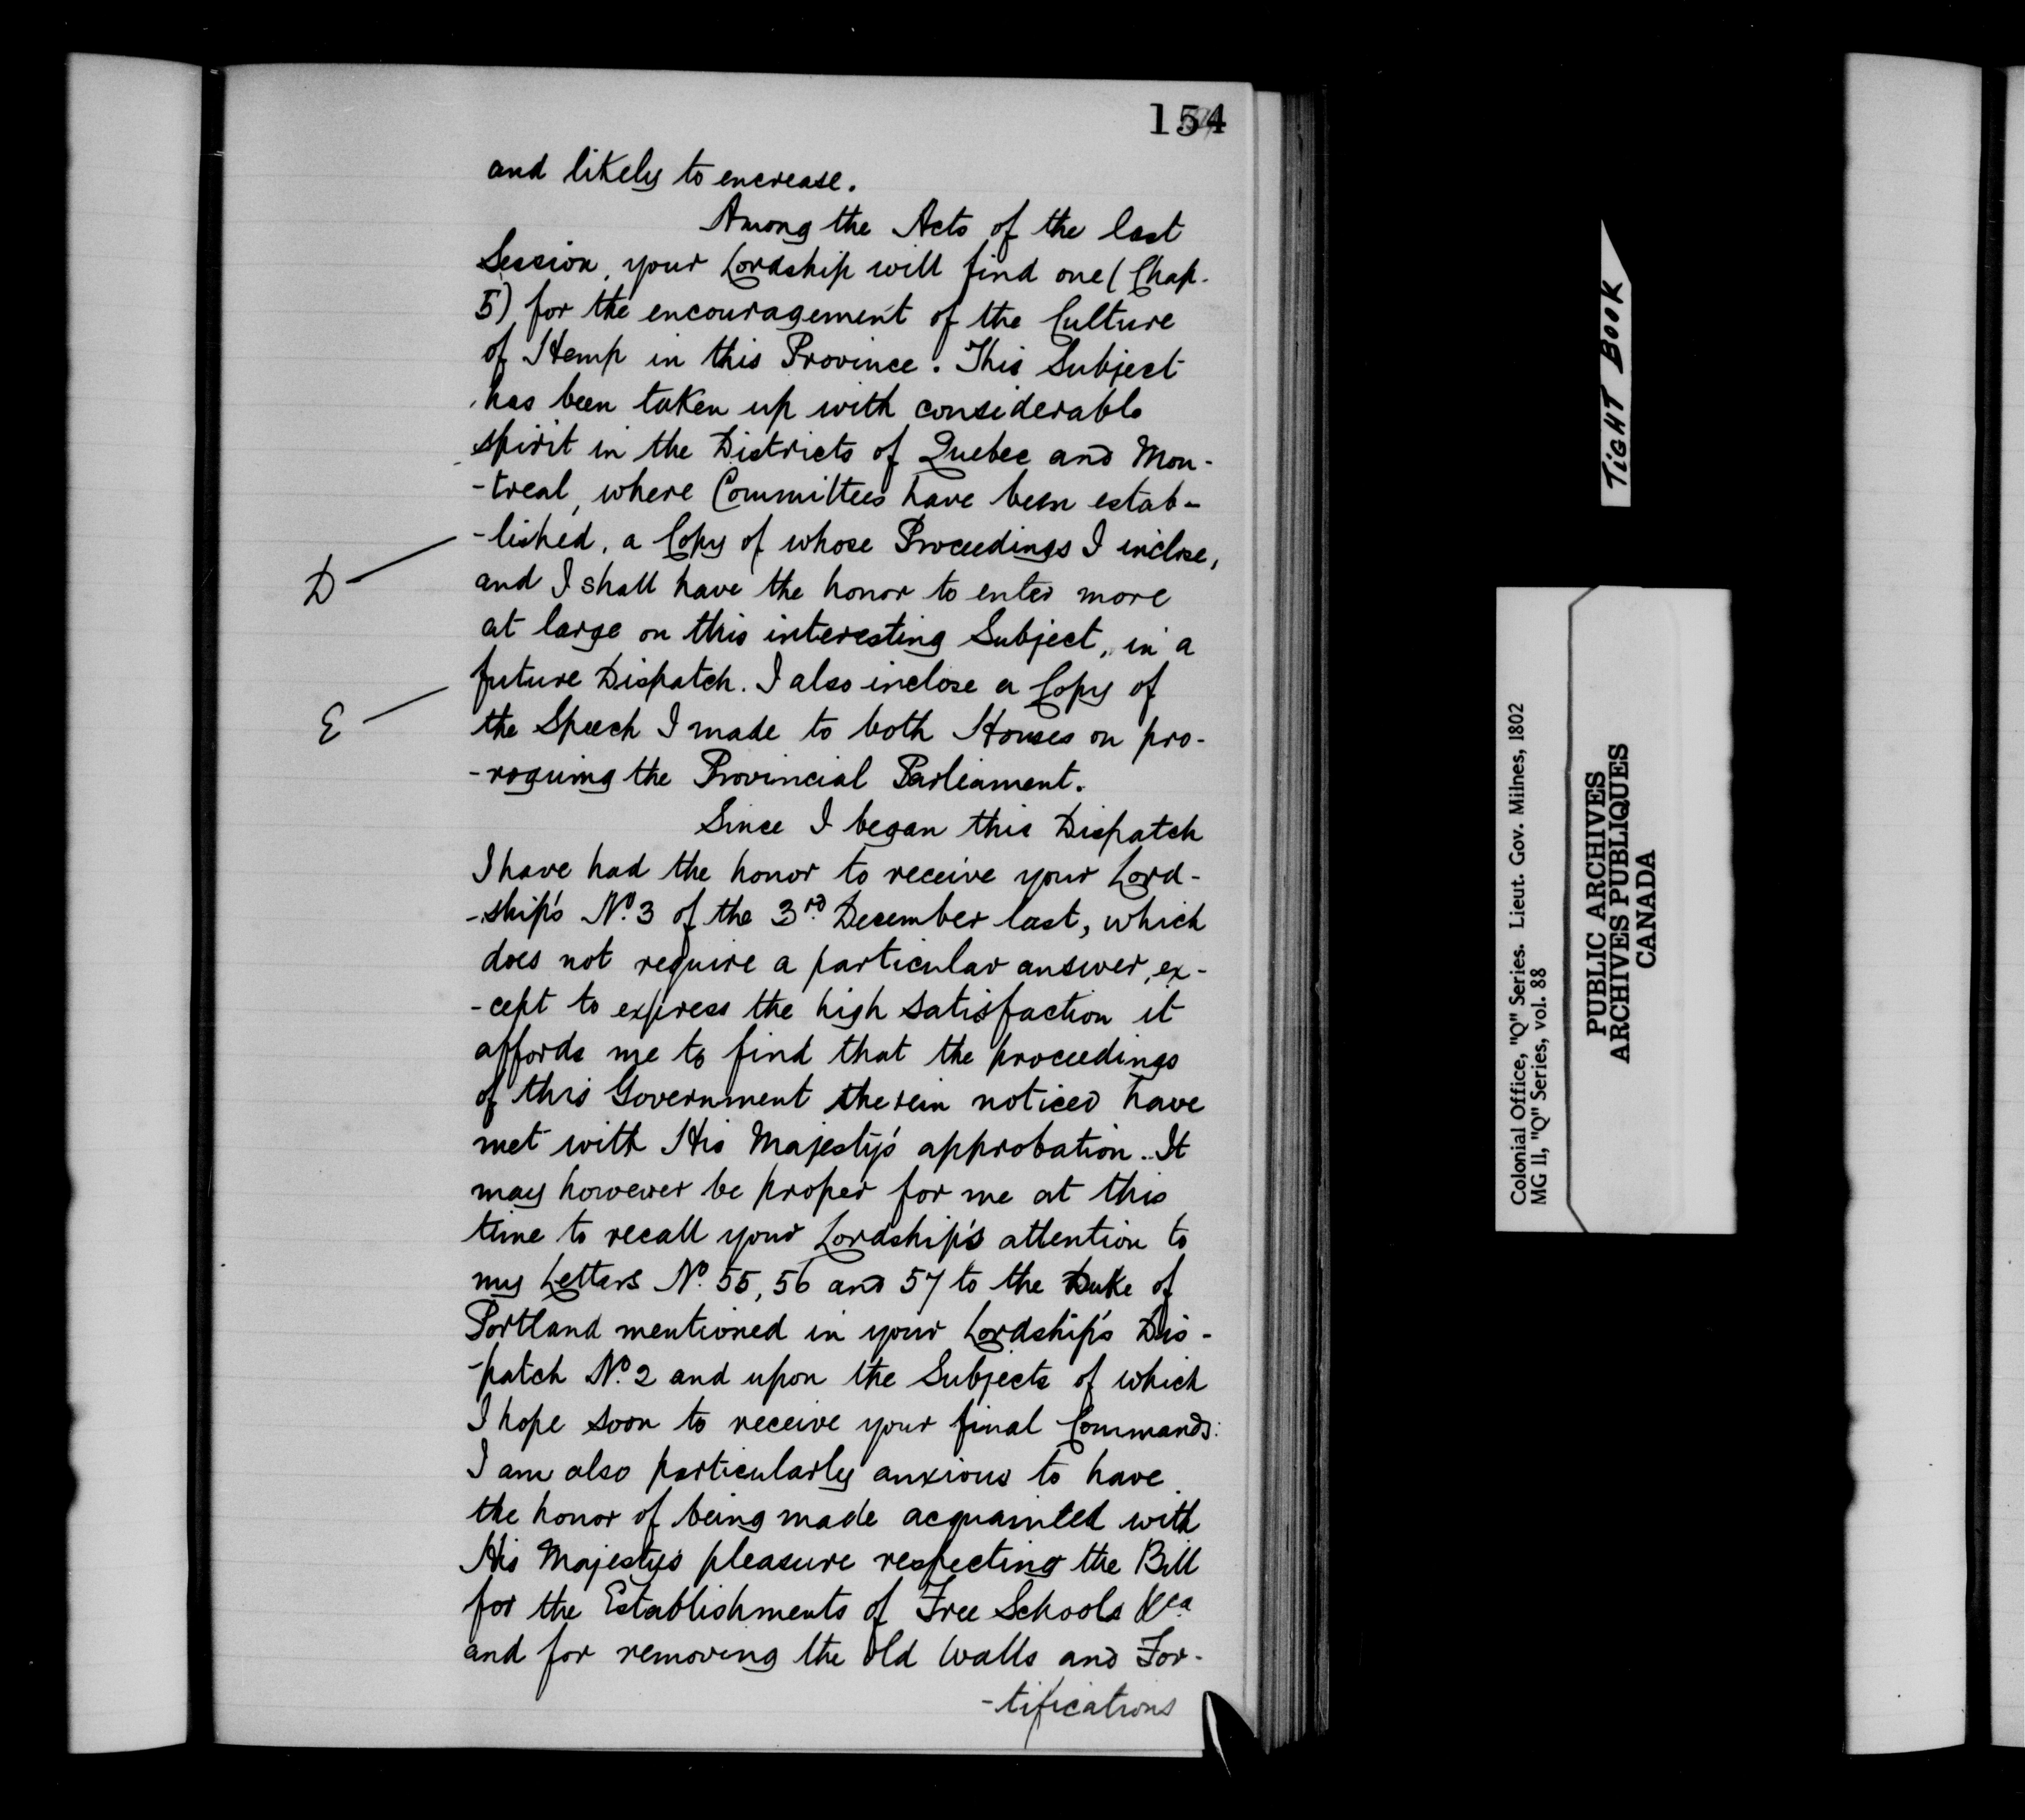 154
and likely to encrease.
Among the Acts of the last
Session, your Lordship will find one (Chap.
5) for the encouragement of the Culture
of Hemp in this Province. This Subject
has been taken up with considerable
spirit in the Districts of Quebec and Mon-
-treal, where Committees have been estab-
-lished, a Copy of whose Proceedings I inclose,
D
and I shall have the honor to enter more
at large on this interesting Subject, in a
future Dispatch. I also inclose a Copy of
E
the Speech I made to both Houses on pro-
-roguing the Provincial Parliament.
Since I began this Dispatch
I have had the honor to receive your Lord-
-ship's No. 3 of the 3rd December last, which
does not require a particular answer, ex-
-cept to express the high satisfaction it
affords me to find that the proceedings
of this Government therein noticed have
met with His Majesty's approbation. It
may however be proper for me at this
time to recall your Lordship's attention to
my Letters No. 55, 56 and 57 to the Duke of
Portland mentioned in your Lordship's Dis-
-patch No. 2 and upon the Subjects of which
I hope soon to receive your final Commands:
I am also particularly anxious to have
the honor of being made acquainted with
His Majesty's pleasure respecting the Bill
for the Establishments of Free Schools &ca
and for removing the old Walls and For-
-tifications
TIGHT BOOK
Colonial Office, "Q" Series. Lieut. Gov. Milnes, 1802
MG 11, "Q" Series, vol. 88
PUBLIC ARCHIVES
ARCHIVES PUBLIQUES
CANADA